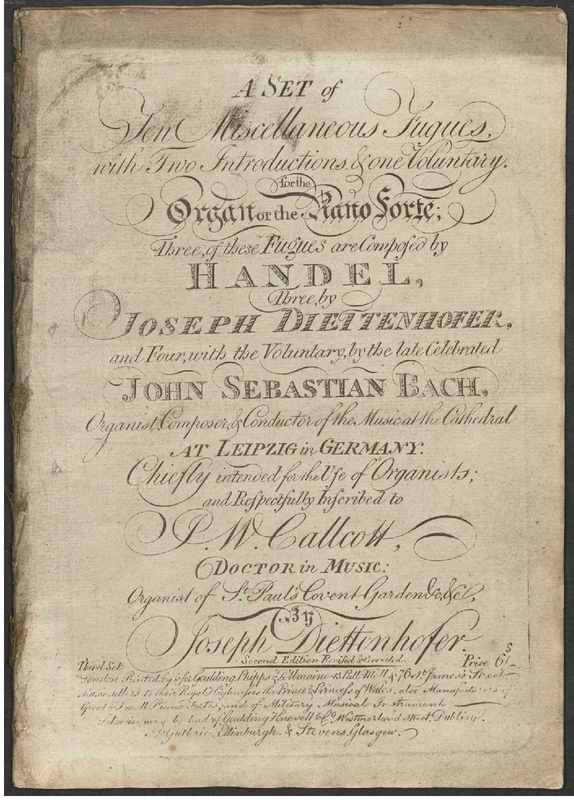 A SET of
Ten Miscellaneous Fugues,
with Two Introductions, & one Voluntary.
for the
Organ or the Piano Forte;
Three, of these Fugues are Composed by
HANDEL,
Three, by
JOSEPH DIETTENHOFER,
and Four, with the Voluntary, by the late Celebrated
JOHN SEBASTIAN BACH,
Organist, Composer, & Conductor of the Music at the Cathedral
AT LEIPZIG in GERMANY:
Chiefly intended for the Use of Organists;
and Respectfully Inscribed to
J. W. Callcott,
DOCTOR in MUSIC:
Organist of St. Paul's Covent Garden &c, &c,
By
Joseph Diettenhofer.
Second Edition Revised & Corrected.
Third Set Price 6s/-
London Printed by Goulding Phipps & D'Almaine 45 Pall Mall & 76 St. James's Street
Music Sellers to their Royal Highnesses the Prince & Princess of Wales, also Manufacturers of
Grand & Small Piano Fortes, and of Military Musical Instruments
Likewise may be had of Goulding Knevell & Co. Westmorland Street Dublin,
Guthrie, Edinburgh. & Stevens, Glasgow.